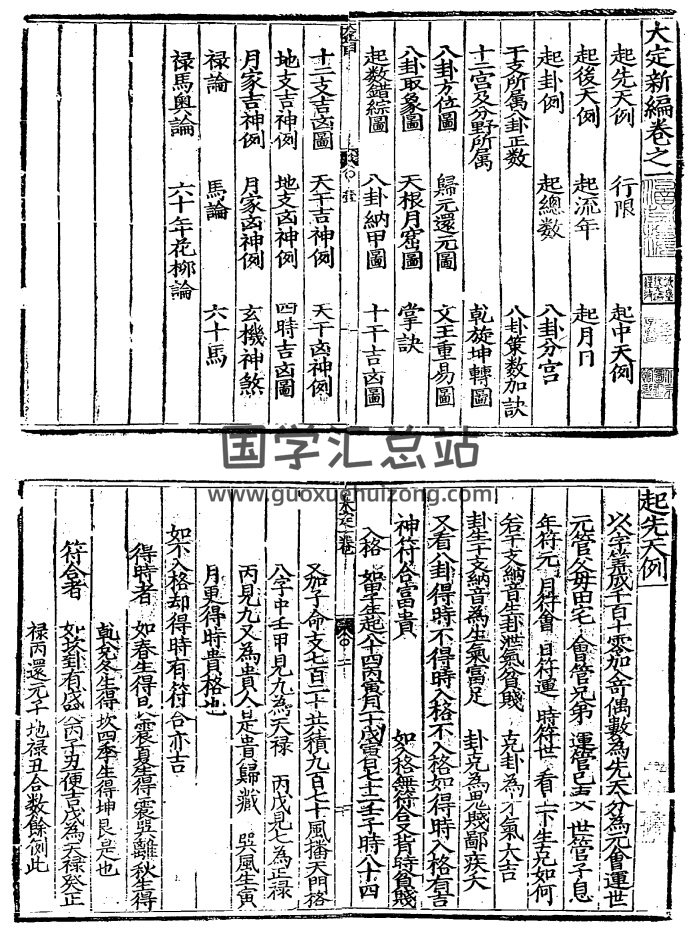 大定新編卷之一
起先天例 行限 起中天例
起後天例 起流年 起月日
起卦例 起總數 八卦分宮
干支所屬八卦正數 八卦策數加訣
十二宮及分野所屬 乾旋坤轉圖
八卦方位圖 歸元還元圖 文王重易圖
八卦取象圖 天根月窟圖 掌訣
起数錯綜圖 八卦納甲圖 十干吉凶圖
十二支吉凶圖 天干吉神例 天干凶神例
地支吉神例 地支凶神例 四時吉凶圖
月家吉神例 月家凶神例 玄機神煞
禄論 馬論 六十馬
禄馬奥論 六十年花柳論
国学汇总站
www.guoxuehuizong.com
起先天例
以 成千百十零加奇偶數為先天分為元會運世
元管父母田宅 會管兄弟 運管己 世管子息
年符元 月符會 日符運 時符世 看上下生克如何
若干支納音生卦泄氣貧賤 克卦為才氣大吉
卦生干支納音為生氣富足 卦克為鬼賤鄙疾大
又看八卦得時不得時入格不入格如得時入格有吉
神符合富貴 如入格無符合又背時貧賤
入格 如甲子年起八十四丙寅月十 寅日七十二壬子時八十四
又加子命支七百二十共積九百 十風播天門格
八字中壬甲見九為天禄 丙戊見 為正禄
丙見九又為貴人是貴歸藏 巽風生寅
月更得時貴格也
如不入格却得時有符合亦吉
得時者 如春生得 震夏生得震巽離秋生得
乾 冬生得坎四季生得坤艮是也
符合者 如坎卦有 丙子丑便吉戊為天禄癸正
禄丙還元子地禄丑合数餘倒此